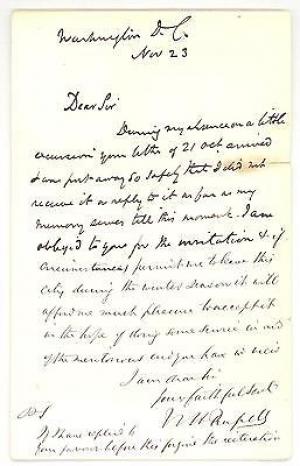 Washington D.C.
Nov 23
Dear Sir
During my absence on a little
excursion your letter of 21 Oct arrived
& was put away so safely that I did not
receive it or reply to it as far as my
memory serves till this moment. I am
obliged to you for the invitation & if
circumstances permit me to leave this
city during the winter season it will
afford me much pleasure to accept it
in the hope of doing some service in aid
of the meritorious
I am dear Sir
your faithful Servt
W H Russell
PS
If I have replied to
your favour before this forgive the iteration